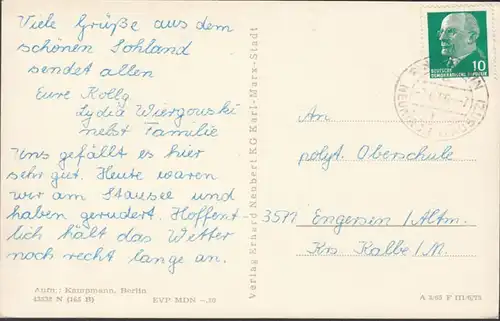 Viele Grüße aus dem
schönen Sohland
sendet allen
Eure Kollg.
Lydia Wierzouski
nebst Familie
Uns gefällt es hier
sehr gut. Heute waren
wir am Stausee und
haben gerudert. Hoffent-
lich hält das Wetter
noch recht lange an.
Aufn.: Kampmann, Berlin
EVP MDN -.10
Verlag Erhard Neubert KG Karl-Marx-Stadt
10
DEUTSCHE
DEMOKRATISCHE REPUBLIK
An
polyt. Oberschule
3571 Engersen / Altm.
Krs Kalbe / M.